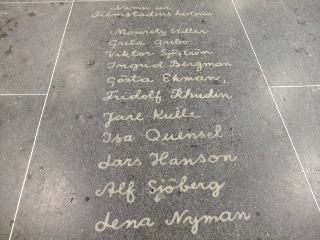 Namn ur
Filmstadens historia
Mauritz Stiller
Greta Garbo
Viktor Sjöström
Ingrid Bergman
Gösta Ekman,
Fridolf Rhudin
Jarl Kulle
Isa Quensel
Lars Hanson
Alf Sjöberg
Lena Nyman